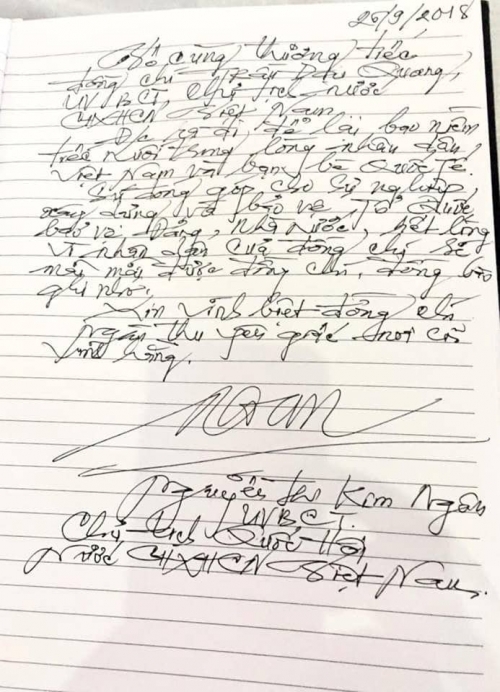 26/9/2018
Vô cùng thương tiếc
đồng chí Trần Đại Quang,
UV BCT, Chủ tịch nước
CHXHCN Việt Nam.
Đc ra đi để lại bao niềm
tiếc nuối trong lòng nhân dân,
Việt Nam và bạn bè Quốc tế.
Sự đóng góp cho sự nghiệp,
xây dựng và bảo vệ Tổ quốc,
bảo vệ Đảng, Nhà nước, hết lòng
vì nhân dân của đồng chí sẽ
mãi mãi được đồng chí, đồng bào
ghi nhớ.
Xin vĩnh biệt đồng chí
ngàn thu yên giấc nơi cõi
vĩnh hằng.
Ngân
Nguyễn Thị Kim Ngân
UVBCT.
Chủ tịch Quốc Hội
Nước CHXHCN Việt Nam.